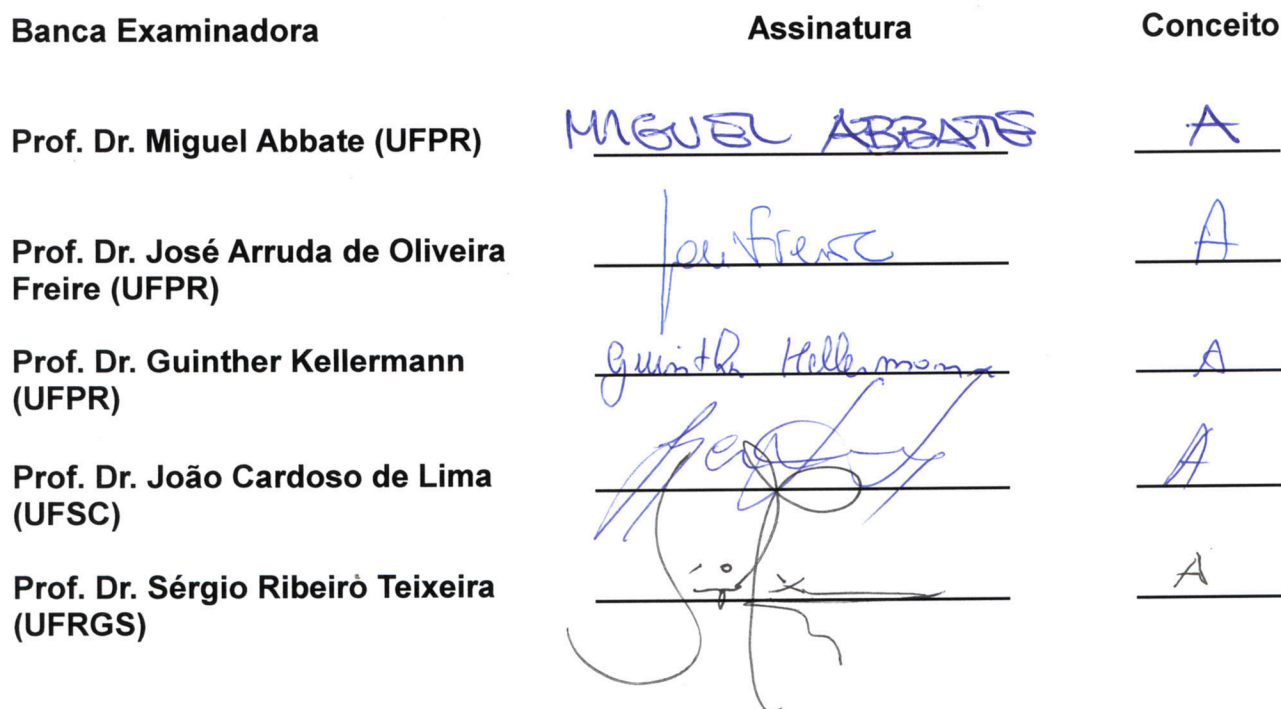 Banca Examinadora Assinatura Conceito
Prof. Dr. Miguel Abbate (UFPR) MIGUEL ABBATE A
Prof. Dr. José Arruda de Oliveira
Freire (UFPR) A
Prof. Dr. Guinther Kellermann
(UFPR) Guinther Kellermann A
Prof. Dr. João Cardoso de Lima
(UFSC) A
Prof. Dr. Sérgio Ribeiro Teixeira
(UFRGS) A